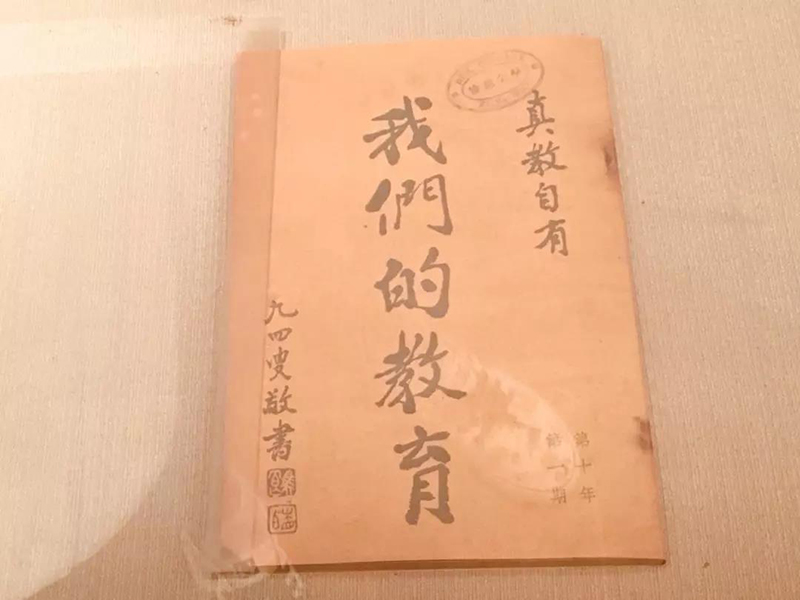 真教自有
第十年
第一期
我們的教育
九四叟敬書